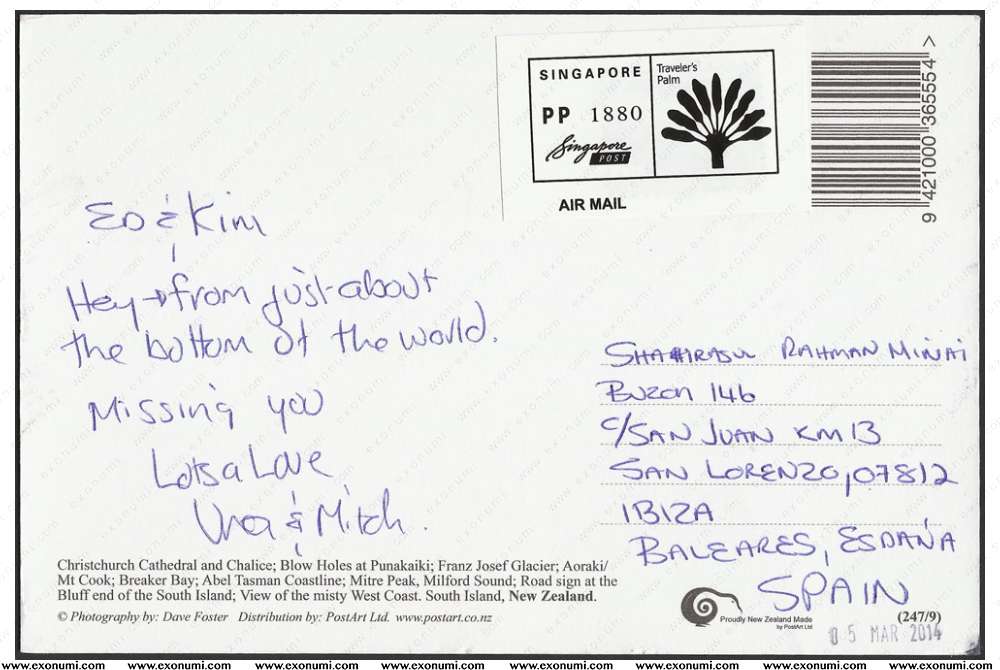 SINGAPORE
PP 1880
Singapore
POST
Traveler's
Palm
AIR MAIL
9 421000 365554 >
ED & KIM
Hey → from just about
the bottom of the world.
Missing you
Lotsa Love
& Mitch.
RAHMAN MINAI
Buzon 146
C/SAN JUAN KM 13
SAN LORENZO, 07812
IBIZA
BALEARES, ESPAÑA
SPAIN
Christchurch Cathedral and Chalice; Blow Holes at Punakaiki; Franz Josef Glacier; Aoraki/
Mt Cook; Breaker Bay; Abel Tasman Coastline; Mitre Peak, Milford Sound; Road sign at the
Bluff end of the South Island; View of the misty West Coast. South Island, New Zealand.
© Photography by: Dave Foster Distribution by: PostArt Ltd. www.postart.co.nz
Proudly New Zealand Made
by PostArt Ltd
(247/9)
05 MAR 2014
www.exonumi.com www.exonumi.com www.exonumi.com www.exonumi.com www.exonumi.com www.exonumi.com www.exonumi.com www.exonumi.com